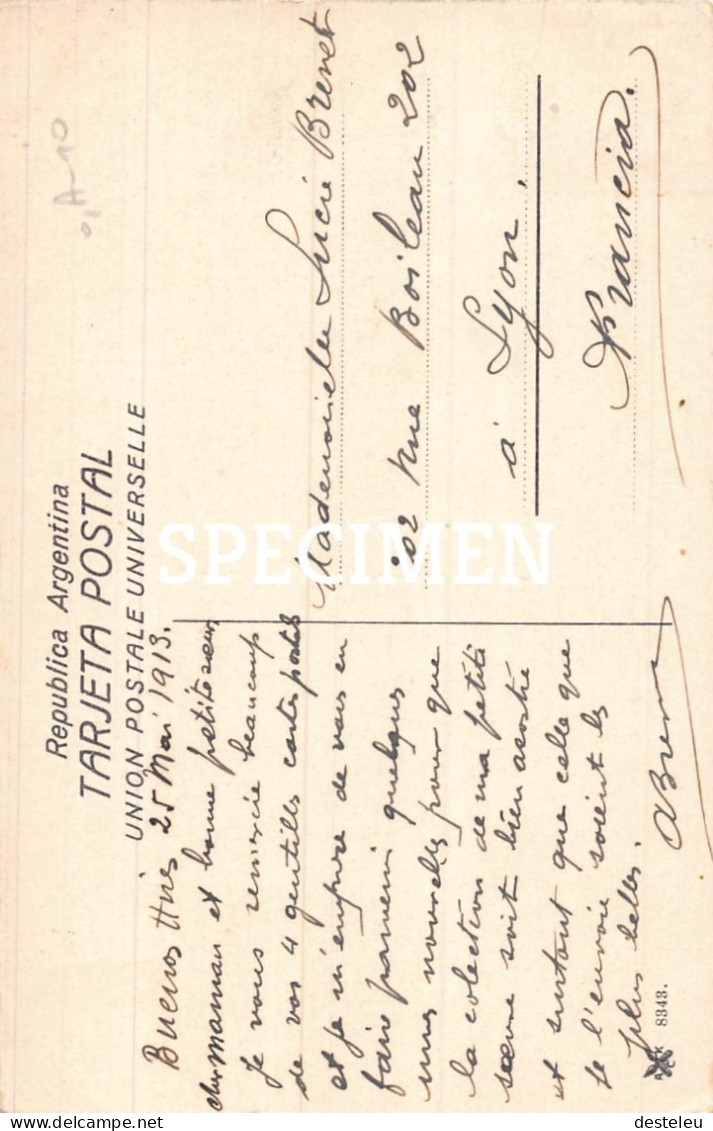 Republica Argentina
TARJETA POSTAL
UNION POSTALE UNIVERSELLE
Buenos Aires 25 Mai 1913.
cher maman et bonne petite sœur
je vous remercie beaucoup
de vos 4 gentilles cartes postals
et je m'enpre de vous en
faire parvenir quelques
unes nouvelles pour que
la colection de ma petite
sœure soit bien asortie
et surtout que celle que
te l'envoie soient les
plus belles.
ABrenet
Mademoiselle Lucie Brenet
202 Rue Boileau 202
à Lyon.
Francia.
8343.
0,A-10
SPECIMEN
desteleu